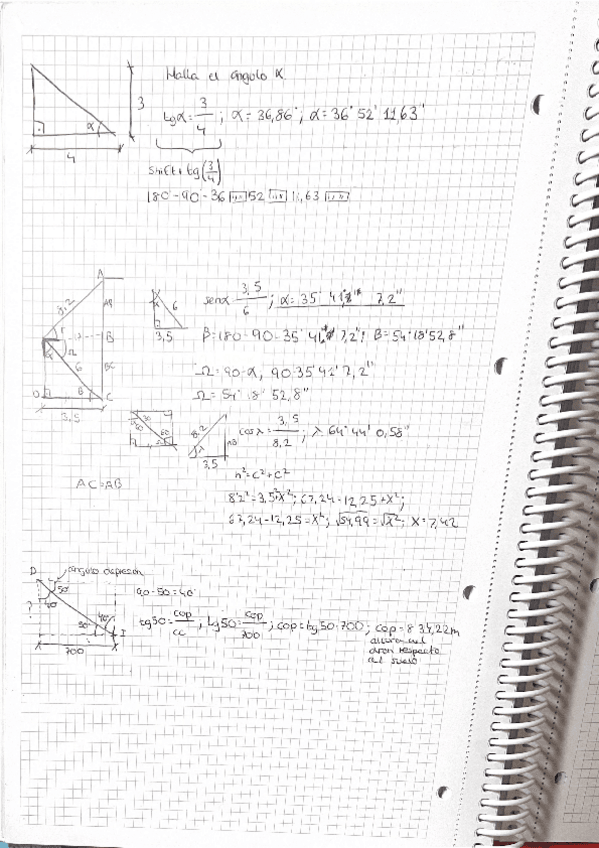 Halla el ángulo α.
3
tgα = 3/4 ; α = 36,86° ; α = 36° 52' 11,63"
α
4
shift + tg(3/4)
180° - 90 - 36 52 11,63
A
8,2
AB
α
6
3,5
senα 3,5/6 ; α = 35° 41' 7,2"
B
β = 180 - 90 - 35° 41' 7,2" ; β = 54° 18' 52,8"
α
Ω
6
BC
Ω = 90 - α, 90 35° 41' 7,2"
D
B
C
Ω = 54° 18' 52,8"
3,5
8,2
λ
3,5
cosλ = 3,5/8,2 ; λ 64° 44' 0,58"
h² = c² + c²
AC = AB
8,2² = 3,5² + x² ; 67,24 = 12,25 + x² ;
67,24 - 12,25 = x² ; √54,99 = √x² ; x = 7,42
D
ángulo depresión
50°
40°
90 - 50 = 40°
?
tg50 = cop/cc , tg50 = cop/700 ; cop = tg50·700 ; cop = 834,22m
40°
50°
I
700
altura del
dron respecto
al suelo